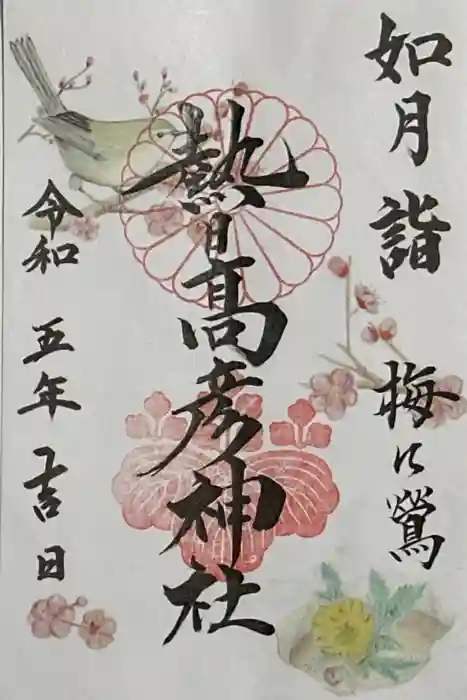 如月詣 梅に鶯
熱日高彦神社
令和五年吉日